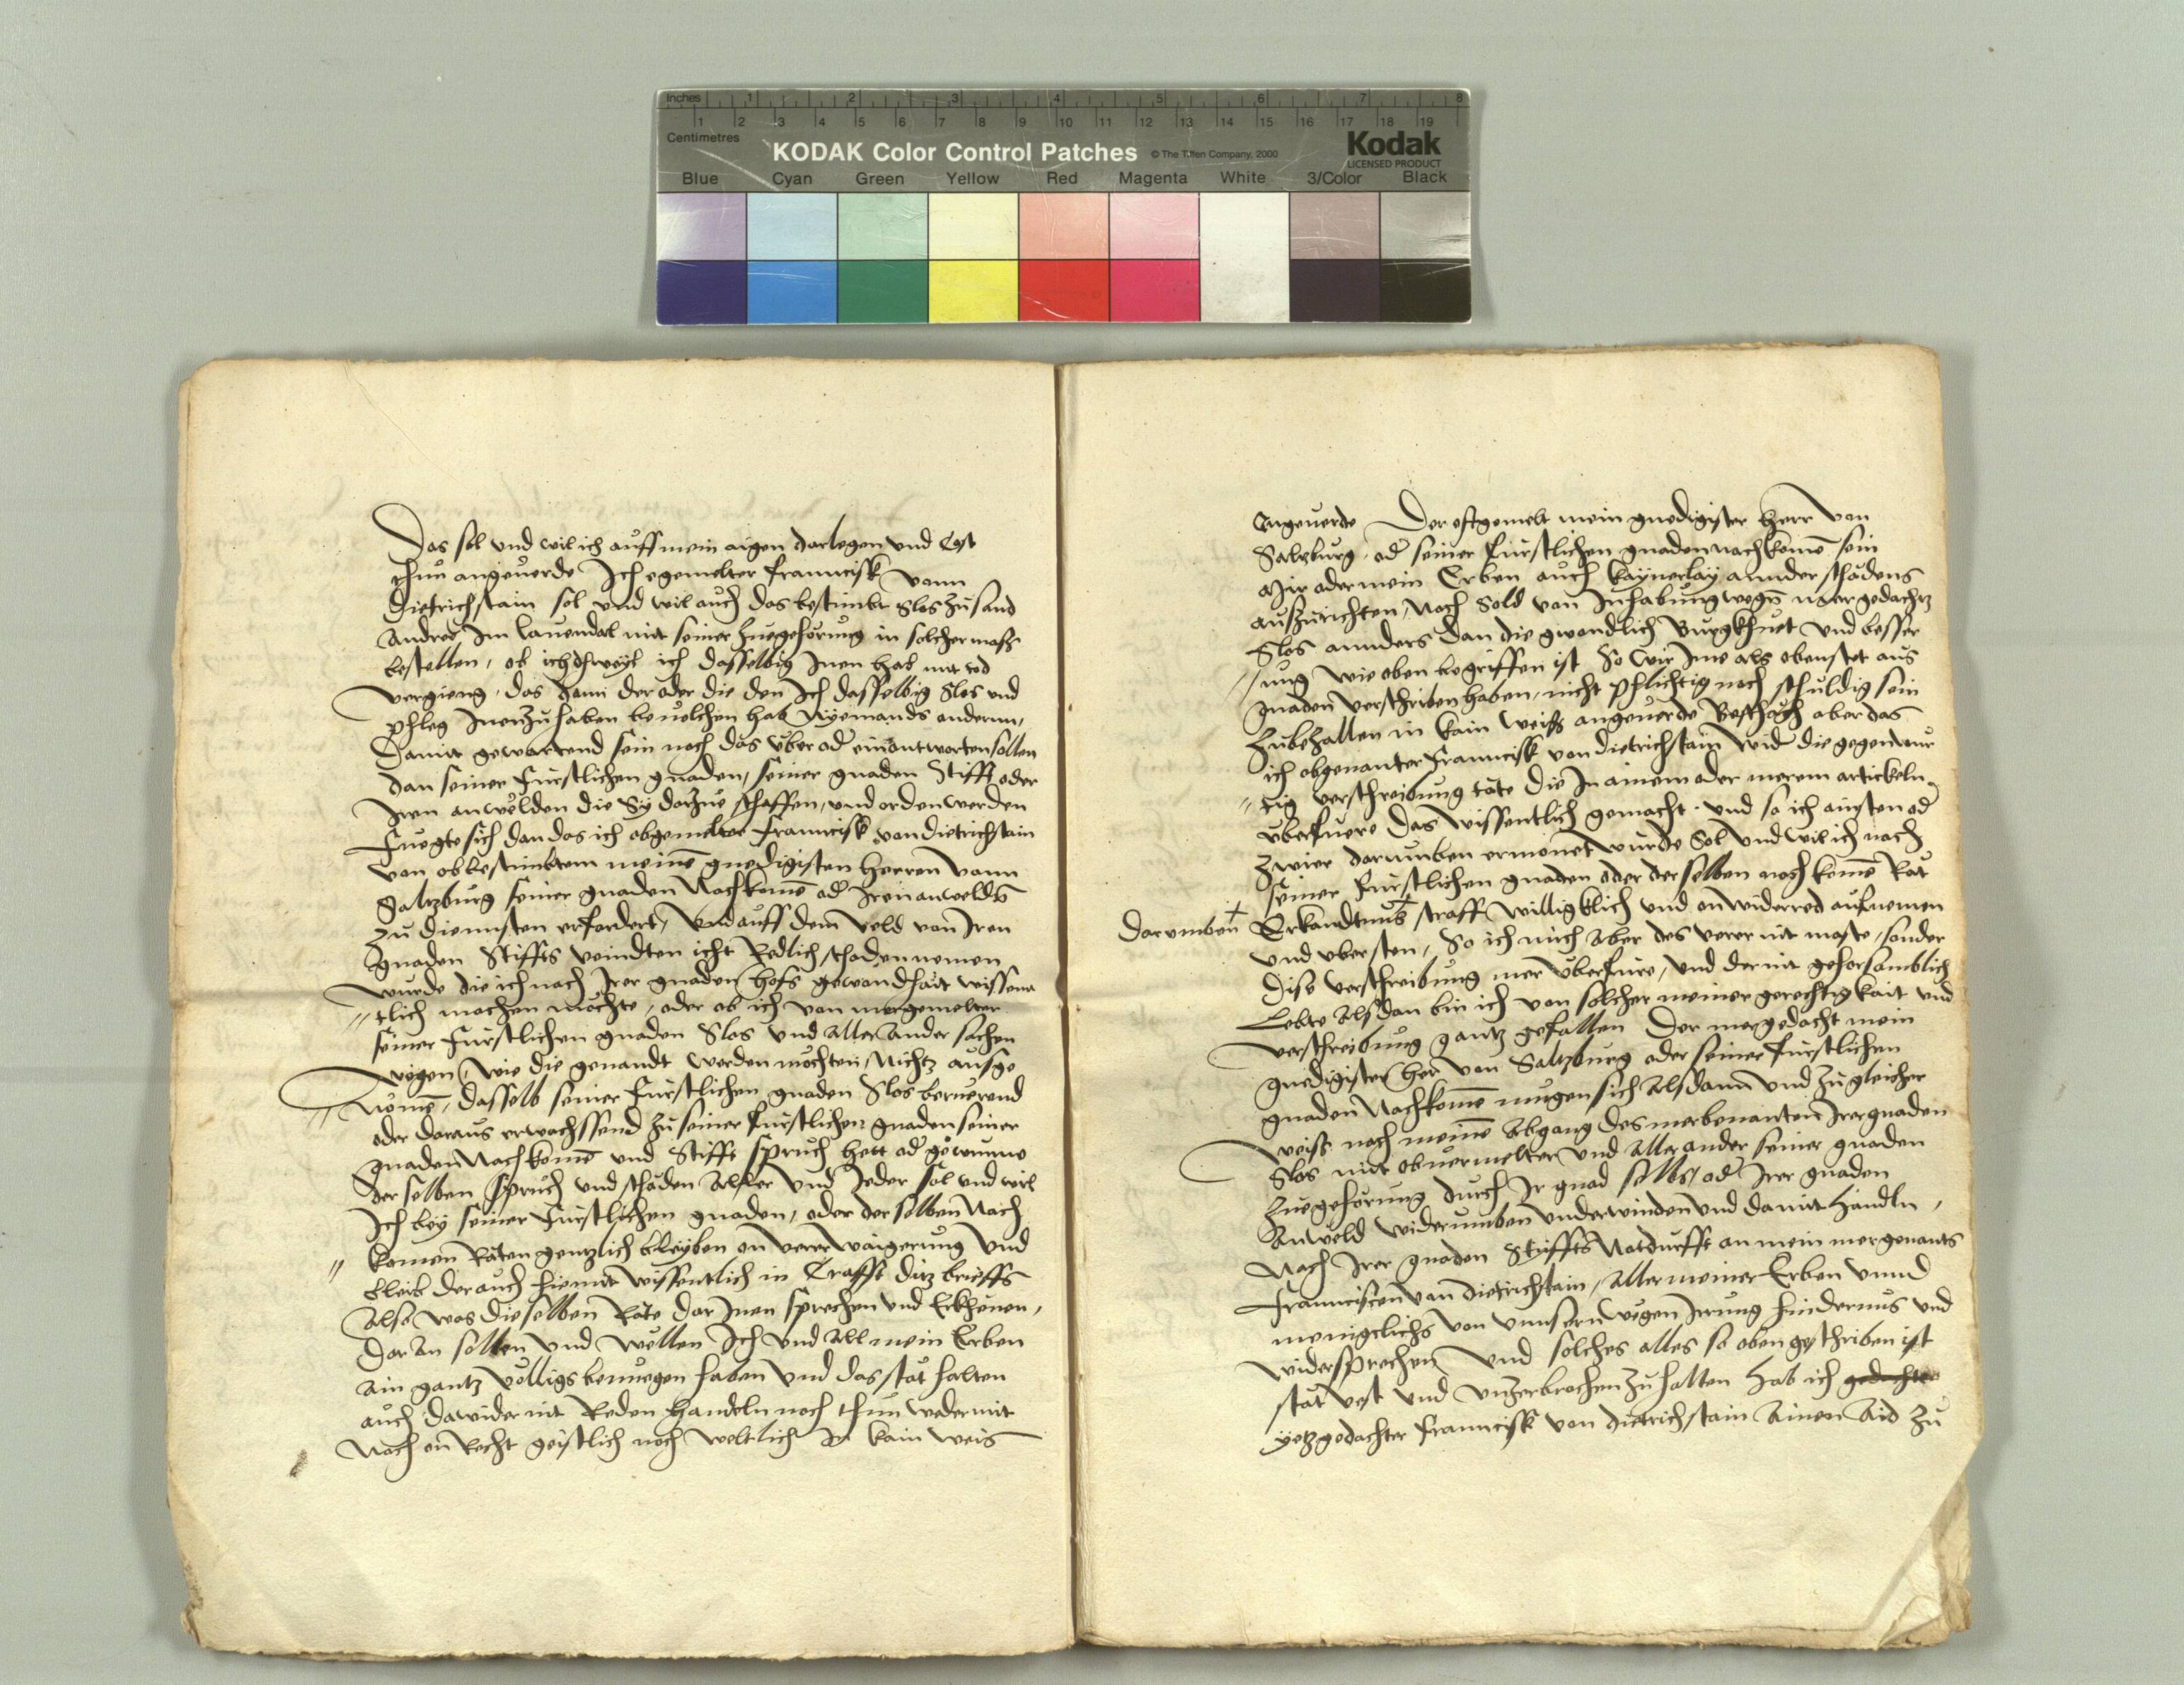 Inches 1 2 3 4 5 6 7 8
1 2 3 4 5 6 7 8 9 10 11 12 13 14 15 16 17 18 19
Centimetres
KODAK Color Control Patches © The Tiffen Company, 2000 Kodak
LICENSED PRODUCT
Blue Cyan Green Yellow Red Magenta White 3/Color Black
Das sol vnd wil ich auff mein aigen darlegen vnd Cost
thun angeuerde Ich egemelter Franncisk vonn
Dietrichstain sol vnd wil auch das bestimbt Slos zu sand
Andree Im Lauendal mit seiner zuegehorung in solcher mass
bestellen, ob ich dhweyl ich dasselbig Inen hab mit tod
vergieng, das dann der oder die den Ich dasselbig Slos vnd
pfleg Inenzuhaben beuolchen hab Nyemands anderm,
Damit gewarttend sein noch das vber od einantwortten sollen
dan seiner Fürstlichen gnaden, seiner gnaden Stifft oder
Iren anwelden die Sy darzue schaffen, vnd orden werden
Fuegte sich dan das ich obgemelter Franncisk von Dietrichstain
von obbestimbtem meinē gnedigisten Herren vonn
Saltzburg seiner gnaden Nachkomē od Iren anweldn
zu diennsten erfordert, Vnd auff dem veld von Iren
gnaden Stiffts veindten icht Redlich schaden nemen
wurde die ich nach Irer gnaden hofs gewondhait wissenn
tlich machen mochte, oder ob ich von mergemelter
seiner Fürstlichen gnaden Slos vnd aller ander sachen
wegen, wie die genandt werden mochten, Nichtz ausge
nomē, dasselb seiner Fürstlichen gnaden Slos beruerend
oder daraus erwachssend zu seiner Fürstlichen gnaden seiner
gnaden Nachkomē vnd Stifft spruch hett od gewunne
der selben spruch vnd schäden aller vnd Jeder sol vnd wil
Ich bey seiner Fürstlichen gnaden, oder der selben Nach
komen Räten genntzlich bleyben on verrer waigerung vnd
bleib der auch hiemit wissentlich in Crafft ditz brieffs
Also was dieselben Räte dar Inen sprechen vnd Erkhenen,
Dar an sollen vnd wellen Ich vnd all mein Erben
ain gantz volligs benuegen haben vnd das stät halten
auch dawider nit Reden handeln noch thun weder mit
Noch on Recht geistlich noch weltlich In kain weis
Angeuerde Der oftgemelt mein gnedigister Herr von
Saltzburg, od seiner Fürstlichen gnaden nachkomē sein
Mir oder mein Erben auch kaynerlay annder schadens
auszurichten, Noch Sold von Inhabung wegn mergedachtz
Slos annders dan die gwondlich Burgkhuet vnd besser
ung wie oben begriffen ist So wir Ime als obenstet aus
gnaden verschriben haben, nicht phlichtig noch schuldig sein
Zubezallen in kain weiss angeuerde Beschäch aber das
ich obgenanter Franncisk von Dietrichstain wid die gegenwur
tig verschreibung täte die In ainem oder merern artickeln
vberfuere das wissentlich gemacht, vnd so ich ainsten od
zwier darumben ermonet wurde Sol vnd wil ich nach
seiner Fürstlichen gnaden oder derselben nachkomē Rät
Darumben Erkandtnus straff willigklich vnd on widerred aufnemen
vnd vbersten, So ich mich aber des verrer nit maste, sonder
dise verschreibung mer vberfuere, vnd der nit gehorsamblich
Lebte als dan bin ich von solcher meiner gerechtigkait vnd
verschreibung gantz gefallen Der mergedacht mein
gnedigister Herr von Saltzburg oder seiner Fürstlichen
gnaden Nachkomē mugen sich alsdann vnd zu gleicher
weiss nach meinē Abgang des merbenanten Irer gnaden
Slos mit obuermelter vnd aller ander seiner gnaden
zuegehorung durch Ir gnad selbs, od Irer gnaden
Anweld widerumben vnderwinden vnd damit handln,
Nach Irer gnaden Stiffts Notdurfft an mein mergenants
Franncisken von Dietrichstain, aller meiner Erben vnnd
menigclichs von vnnsern wegen Irrung hindernus vnd
widersprechen Vnd solches alles so oben geschriben ist
stät vest vnd vnzerbrochen zu halten hab ich gedachter
yetzgedachter Franncisk von Dietrichstain Ainen Aid zu